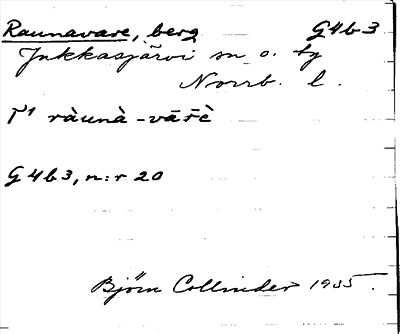 Raunavare, berg G4b3
Jukkasjärvi sn o. tg
Norrb. l.
T¹ ràunà-vāřè
G4b3, n:r 20
Björn Collinder 1935.